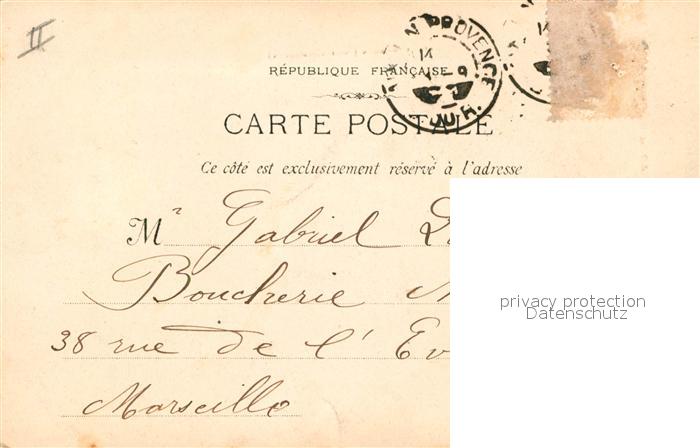 II
RÉPUBLIQUE FRANÇAISE
CARTE POSTALE
Ce côté est exclusivement réservé à l'adresse
Mr Gabriel
Boucherie
38 rue de l' Ev
Marseille
privacy protection
Datenschutz
PROVENCE